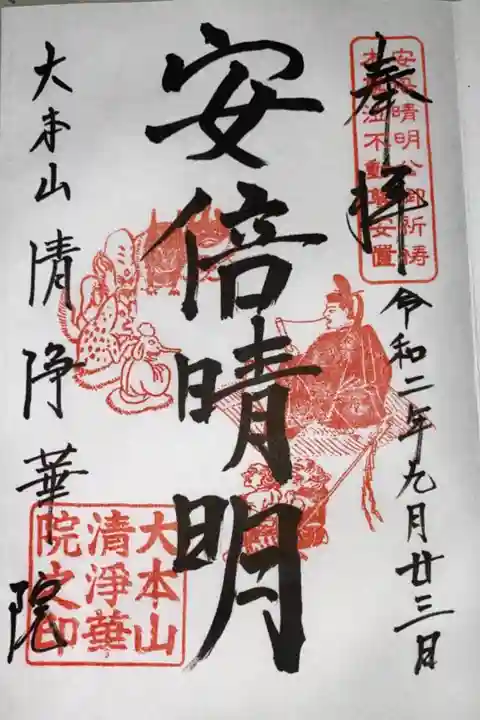 奉拝
安倍晴明公御祈祷
本尊泣不動尊安置
令和二年九月廿三日
安倍晴明
大本山 清浄華院
大本山
清淨華
院之印